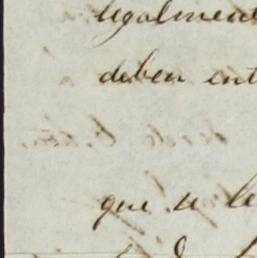 legalment
deben ent
que se le